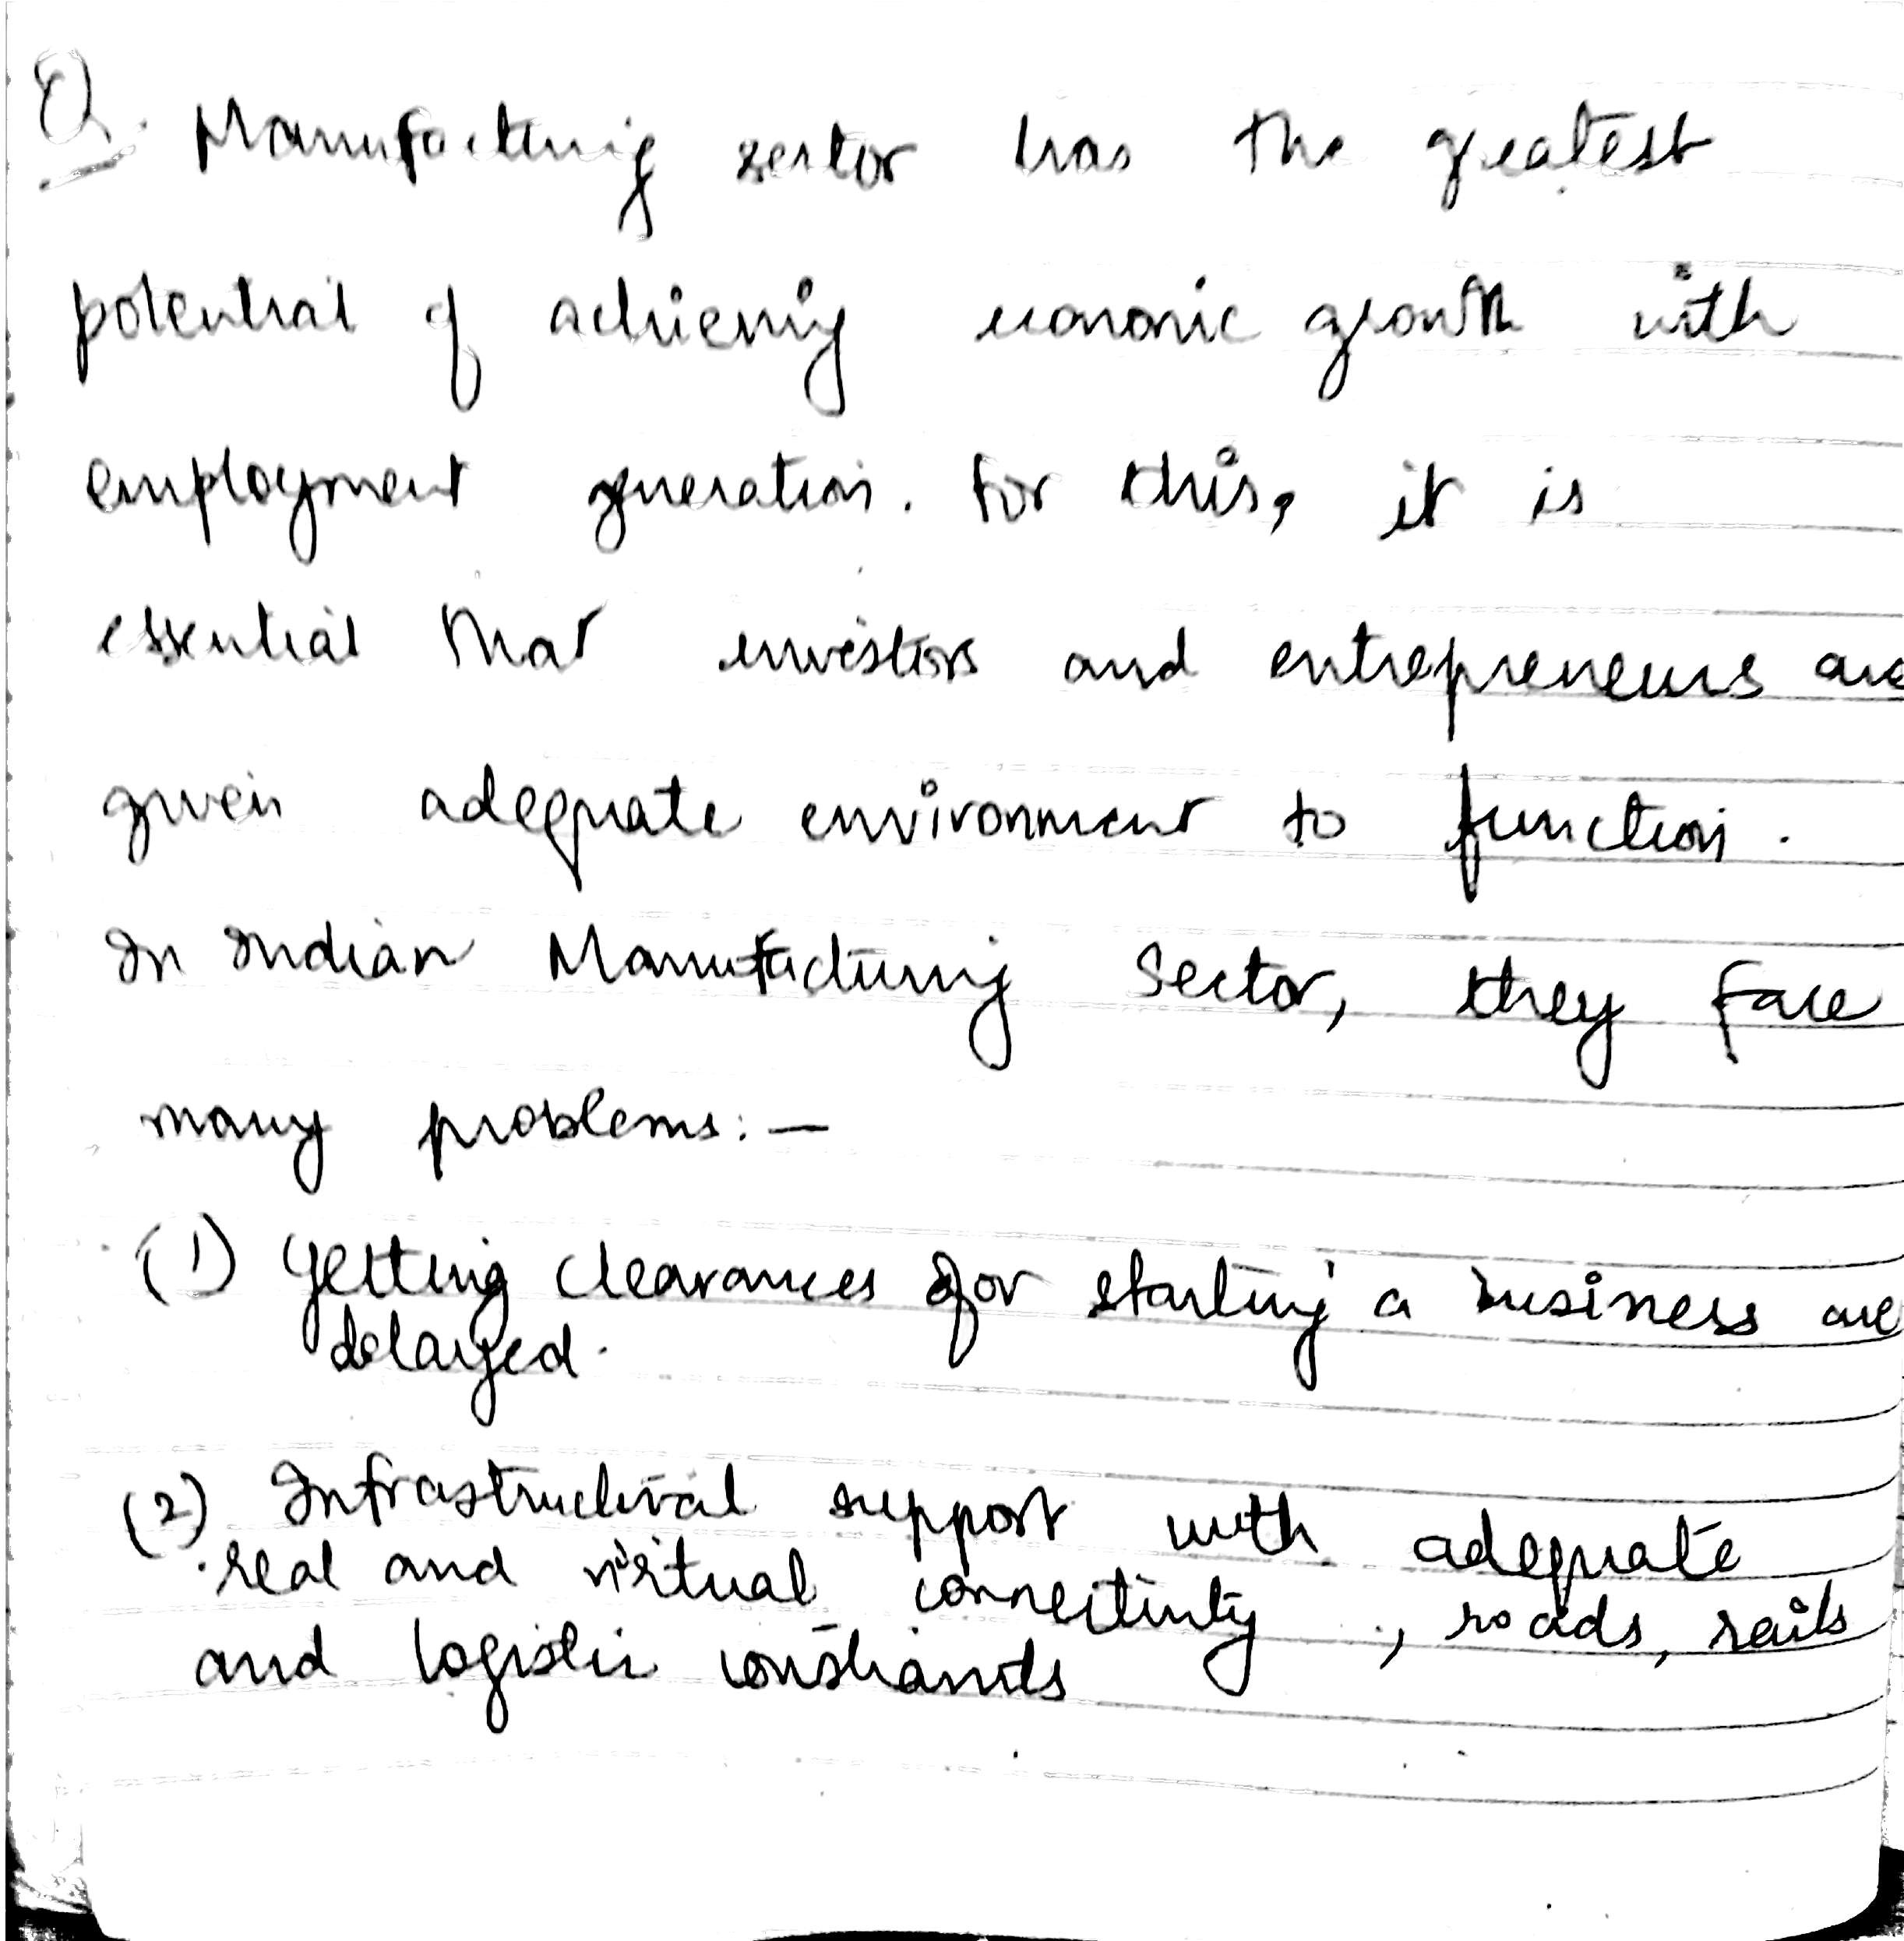 Q. Manufacturing sector has the greatest
potential of achieving economic growth with
employment generation. For this, it is
essential that investors and entrepreneurs are
given adequate environment to function.
In Indian Manufacturing Sector, they face
many problems:—
(1) Getting clearances for starting a business are
delayed.
(2) Infrastructural support with adequate
real and virtual connectivity, roads, rails
and logistic constraints